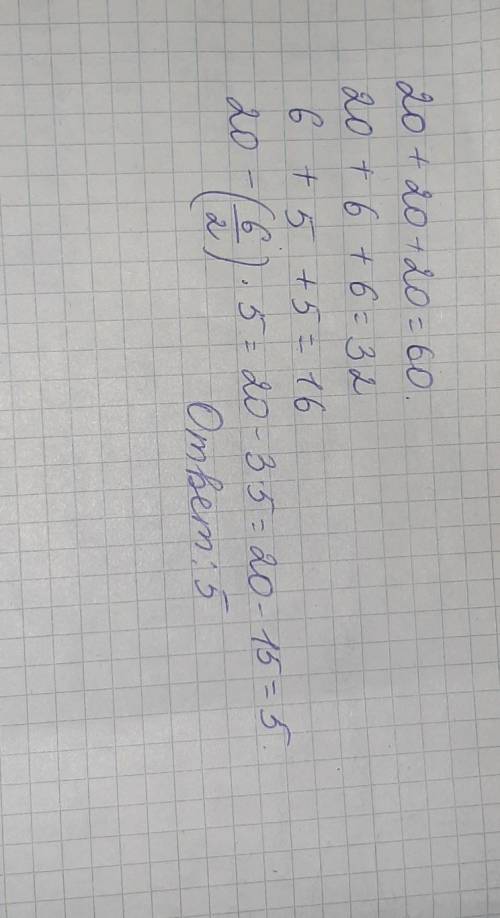 20 + 20 + 20 = 60.
20 + 6 + 6 = 32
6 + 5 + 5 = 16
20 - (6/2) · 5 = 20 - 3·5 = 20 - 15 = 5.
Ответ: 5